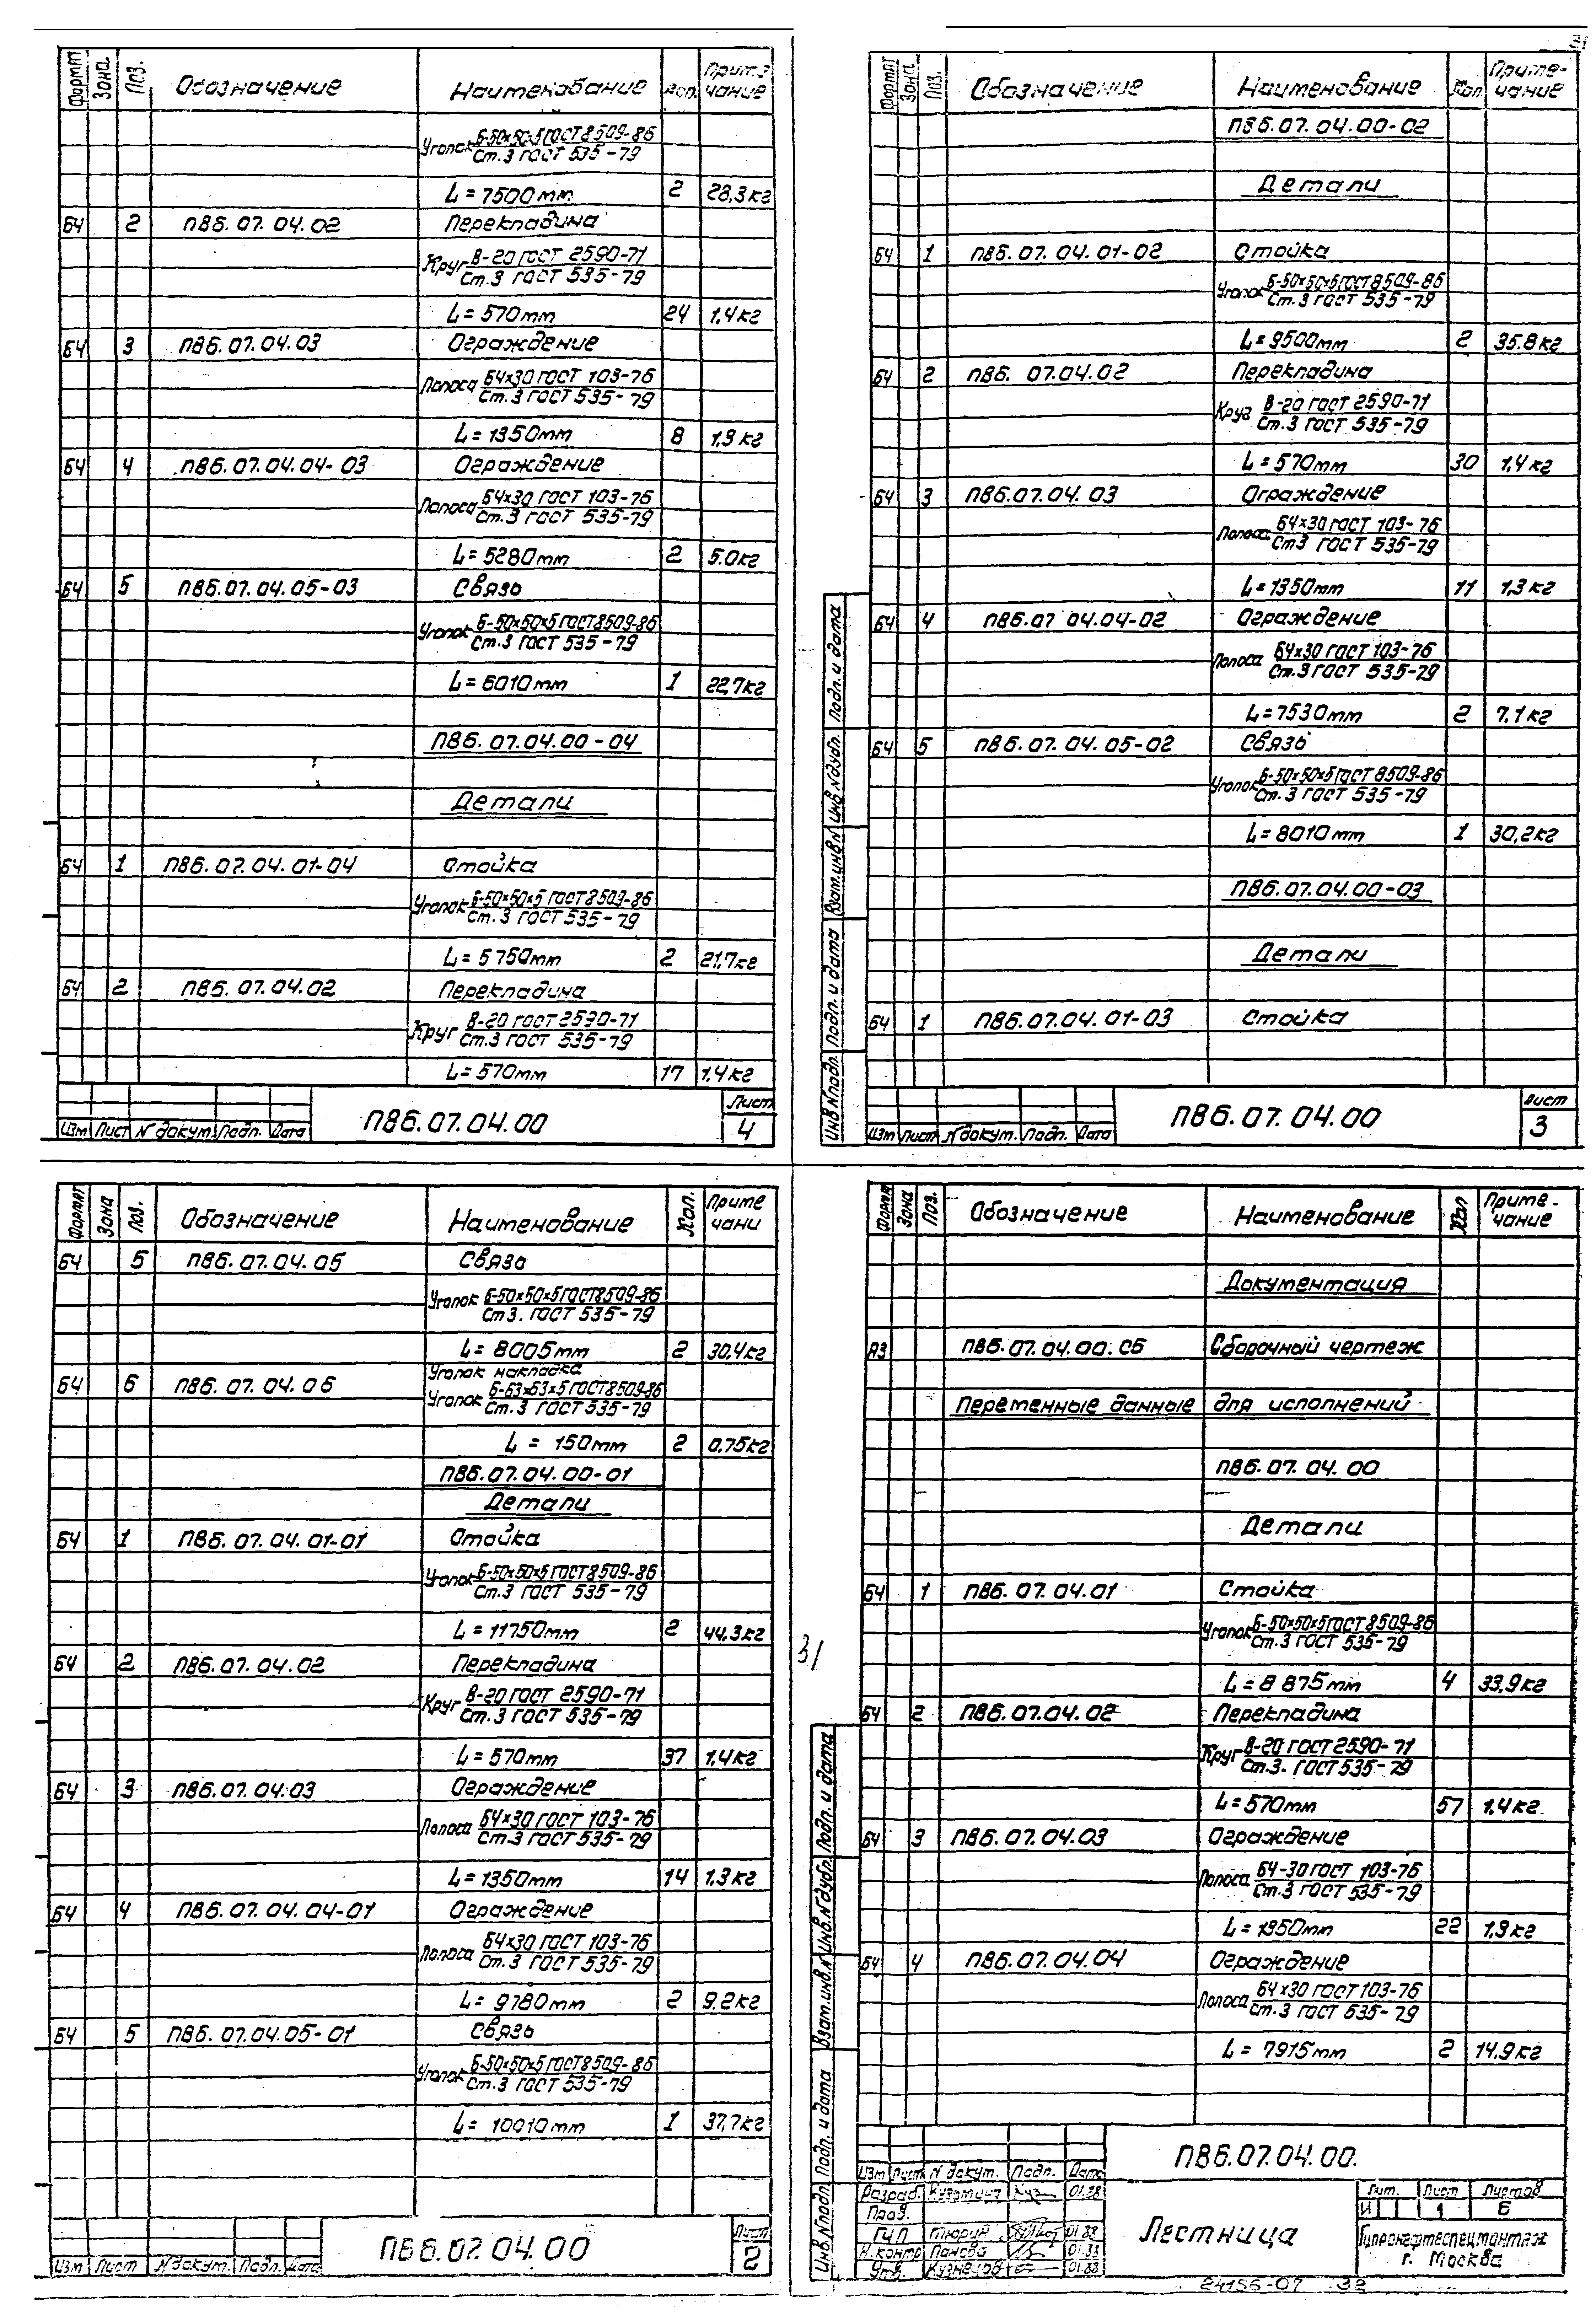 Формат Зона. Поз. Обозначение Наименование Кол. Приме чание
Уголок Б-50×50×5 ГОСТ 8509-86
Ст.3 ГОСТ 535-79
L=7500мм 2 28,3кг
БЧ 2 П8Б.07.04.02 Перекладина
Круг В-20 ГОСТ 2590-71
Ст.3 ГОСТ 535-79
L=570мм 24 1,4кг
БЧ 3 П8Б.07.04.03 Ограждение
Полоса Б4×30 ГОСТ 103-76
Ст.3 ГОСТ 535-79
L=1350мм 8 1,3кг
БЧ 4 П8Б.07.04.04-03 Ограждение
Полоса Б4×30 ГОСТ 103-76
Ст.3 ГОСТ 535-79
L=5280мм 2 5.0кг
БЧ 5 П8Б.07.04.05-03 Связь
Уголок Б-50×50×5 ГОСТ 8509-86
Ст.3 ГОСТ 535-79
L=6010мм 1 22,7кг
П8Б.07.04.00-04
Детали
БЧ 1 П8Б.07.04.01-04 Стойка
Уголок Б-50×50×5 ГОСТ 8509-86
Ст.3 ГОСТ 535-79
L=5750мм 2 21,7кг
БЧ 2 П8Б.07.04.02 Перекладина
Круг В-20 ГОСТ 2590-71
Ст.3 ГОСТ 535-79
L=570мм 17 1,4кг
Изм Лист N докум. Подп. Дата
П8Б.07.04.00
Лист
4
Формат Зона Поз. Обозначение Наименование Кол. Приме-чание
П8Б.07.04.00-02
Детали
БЧ 1 П8Б.07.04.01-02 Стойка
Уголок Б-50×50×5 ГОСТ 8509-86
Ст.3 ГОСТ 535-79
L=9500мм 2 35.8кг
БЧ 2 П8Б.07.04.02 Перекладина
Круг В-20 ГОСТ 2590-71
Ст.3 ГОСТ 535-79
L=570мм 30 1,4кг
БЧ 3 П8Б.07.04.03 Ограждение
Полоса Б4×30 ГОСТ 103-76
Ст3 ГОСТ 535-79
L=1350мм 11 1,3кг
БЧ 4 П8Б.07 04.04-02 Ограждение
Полоса Б4×30 ГОСТ 103-76
Ст.3 ГОСТ 535-79
L=7530мм 2 7,1кг
БЧ 5 П8Б.07.04.05-02 Связь
Уголок Б-50×50×5 ГОСТ 8509-86
Ст.3 ГОСТ 535-79
L=8010мм 1 30,2кг
П8Б.07.04.00-03
Детали
БЧ 1 П8Б.07.04.01-03 Стойка
Инв.N подл. Подп. и дата Взам.инв.N Инв.N дубл. Подп. и дата
Изм Лист N докум. Подп. Дата
П8Б.07.04.00
Лист
3
Формат Зона Поз. Обозначение Наименование Кол. Приме чани
БЧ 5 П8Б.07.04.05 Связь
Уголок Б-50×50×5 ГОСТ 8509-86
Ст3. ГОСТ 535-79
L=8005мм 2 30,4кг
Уголок накладка
БЧ 6 П8Б.07.04.06 Уголок Б-63×63×5 ГОСТ 8509-86
Ст.3 ГОСТ 535-79
L = 150мм 2 0,75кг
П8Б.07.04.00-01
Детали
БЧ 1 П8Б.07.04.01-01 Стойка
Уголок Б-50×50×5 ГОСТ 8509-86
Ст.3 ГОСТ 535-79
L=11750мм 2 44,3кг
БЧ 2 П8Б.07.04.02 Перекладина
Круг В-20 ГОСТ 2590-71
Ст.3 ГОСТ 535-79
L=570мм 37 1,4кг
БЧ 3 П8Б.07.04.03 Ограждение
Полоса Б4×30 ГОСТ 103-76
Ст.3 ГОСТ 535-79
L=1350мм 14 1.3кг
БЧ 4 П8Б.07.04.04-01 Ограждение
Полоса Б4×30 ГОСТ 103-76
Ст.3 ГОСТ 535-79
L=9780мм 2 9.2кг
БЧ 5 П8Б.07.04.05-01 Связь
Уголок Б-50×50×5 ГОСТ 8509-86
Ст.3 ГОСТ 535-79
L=10010мм 1 37,7кг
Изм Лист N докум. Подп. Дата
П8Б.07.04.00
Лист
2
31
Формат Зона Поз. Обозначение Наименование Кол Приме-чание
Документация
А3 П8Б.07.04.00.СБ Сборочный чертеж
Переменные данные для исполнений
П8Б.07.04.00
Детали
БЧ 1 П8Б.07.04.01 Стойка
Уголок Б-50×50×5 ГОСТ 8509-86
Ст.3 ГОСТ 535-79
L=8875мм 4 33,9кг
БЧ 2 П8Б.07.04.02 Перекладина
Круг В-20 ГОСТ 2590-71
Ст.3. ГОСТ 535-79
L=570мм 57 1,4кг
БЧ 3 П8Б.07.04.03 Ограждение
Полоса Б4-30 ГОСТ 103-76
Ст.3 ГОСТ 535-79
L=1350мм 22 1,3кг
БЧ 4 П8Б.07.04.04 Ограждение
Полоса Б4×30 ГОСТ 103-76
Ст.3 ГОСТ 535-79
L=7915мм 2 14.9кг
Инв.N подл. Подп. и дата Взам.инв.N Инв.N дубл. Подп. и дата
П8Б.07.04.00.
Изм Лист N докум. Подп. Дата
Разраб. Кузьмина 01.88
Пров.
ГИП Тюрин 01.88
Н.контр Панова 01.88
Утв. Кузнецов 01.88
Лестница
Лит. Лист Листов
И 1 6
Гипронефтеспецмонтаж
г. Москва
24156-07 32